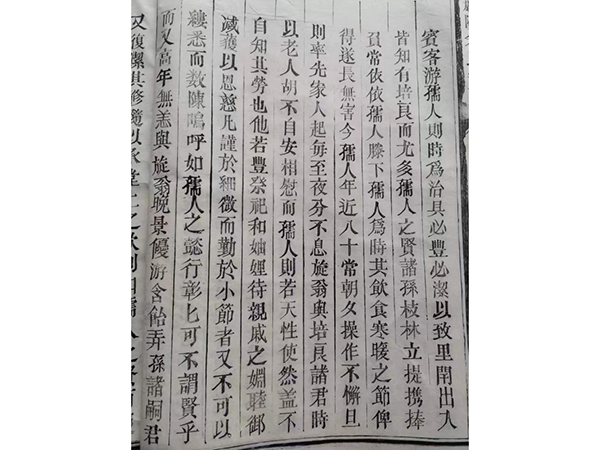 賓客游孺人則時為治具必豐必潔以致里閈出入
皆知有培良而尤多孺人之賢諸孫枝林立提携捧
負常依依孺人膝下孺人為時其飲食寒暖之節俾
得遂長無害今孺人年近八十常朝夕操作不懈旦
則率先家人起每至夜分不息旋翁與培良諸君時
以老人胡不自安相慰而孺人則若天性使然盖不
自知其勞也他若豐祭祀和妯娌待親戚之婣睦御
臧獲以恩慈凡謹於細微而勤於小節者又不可以
縷悉而数陳嗚呼如孺人之懿行彰匕可不謂賢乎
而又高年無恙與旋翁晚景優游含飴弄孫諸嗣君
又復潔其修隨以承堂上之歡則